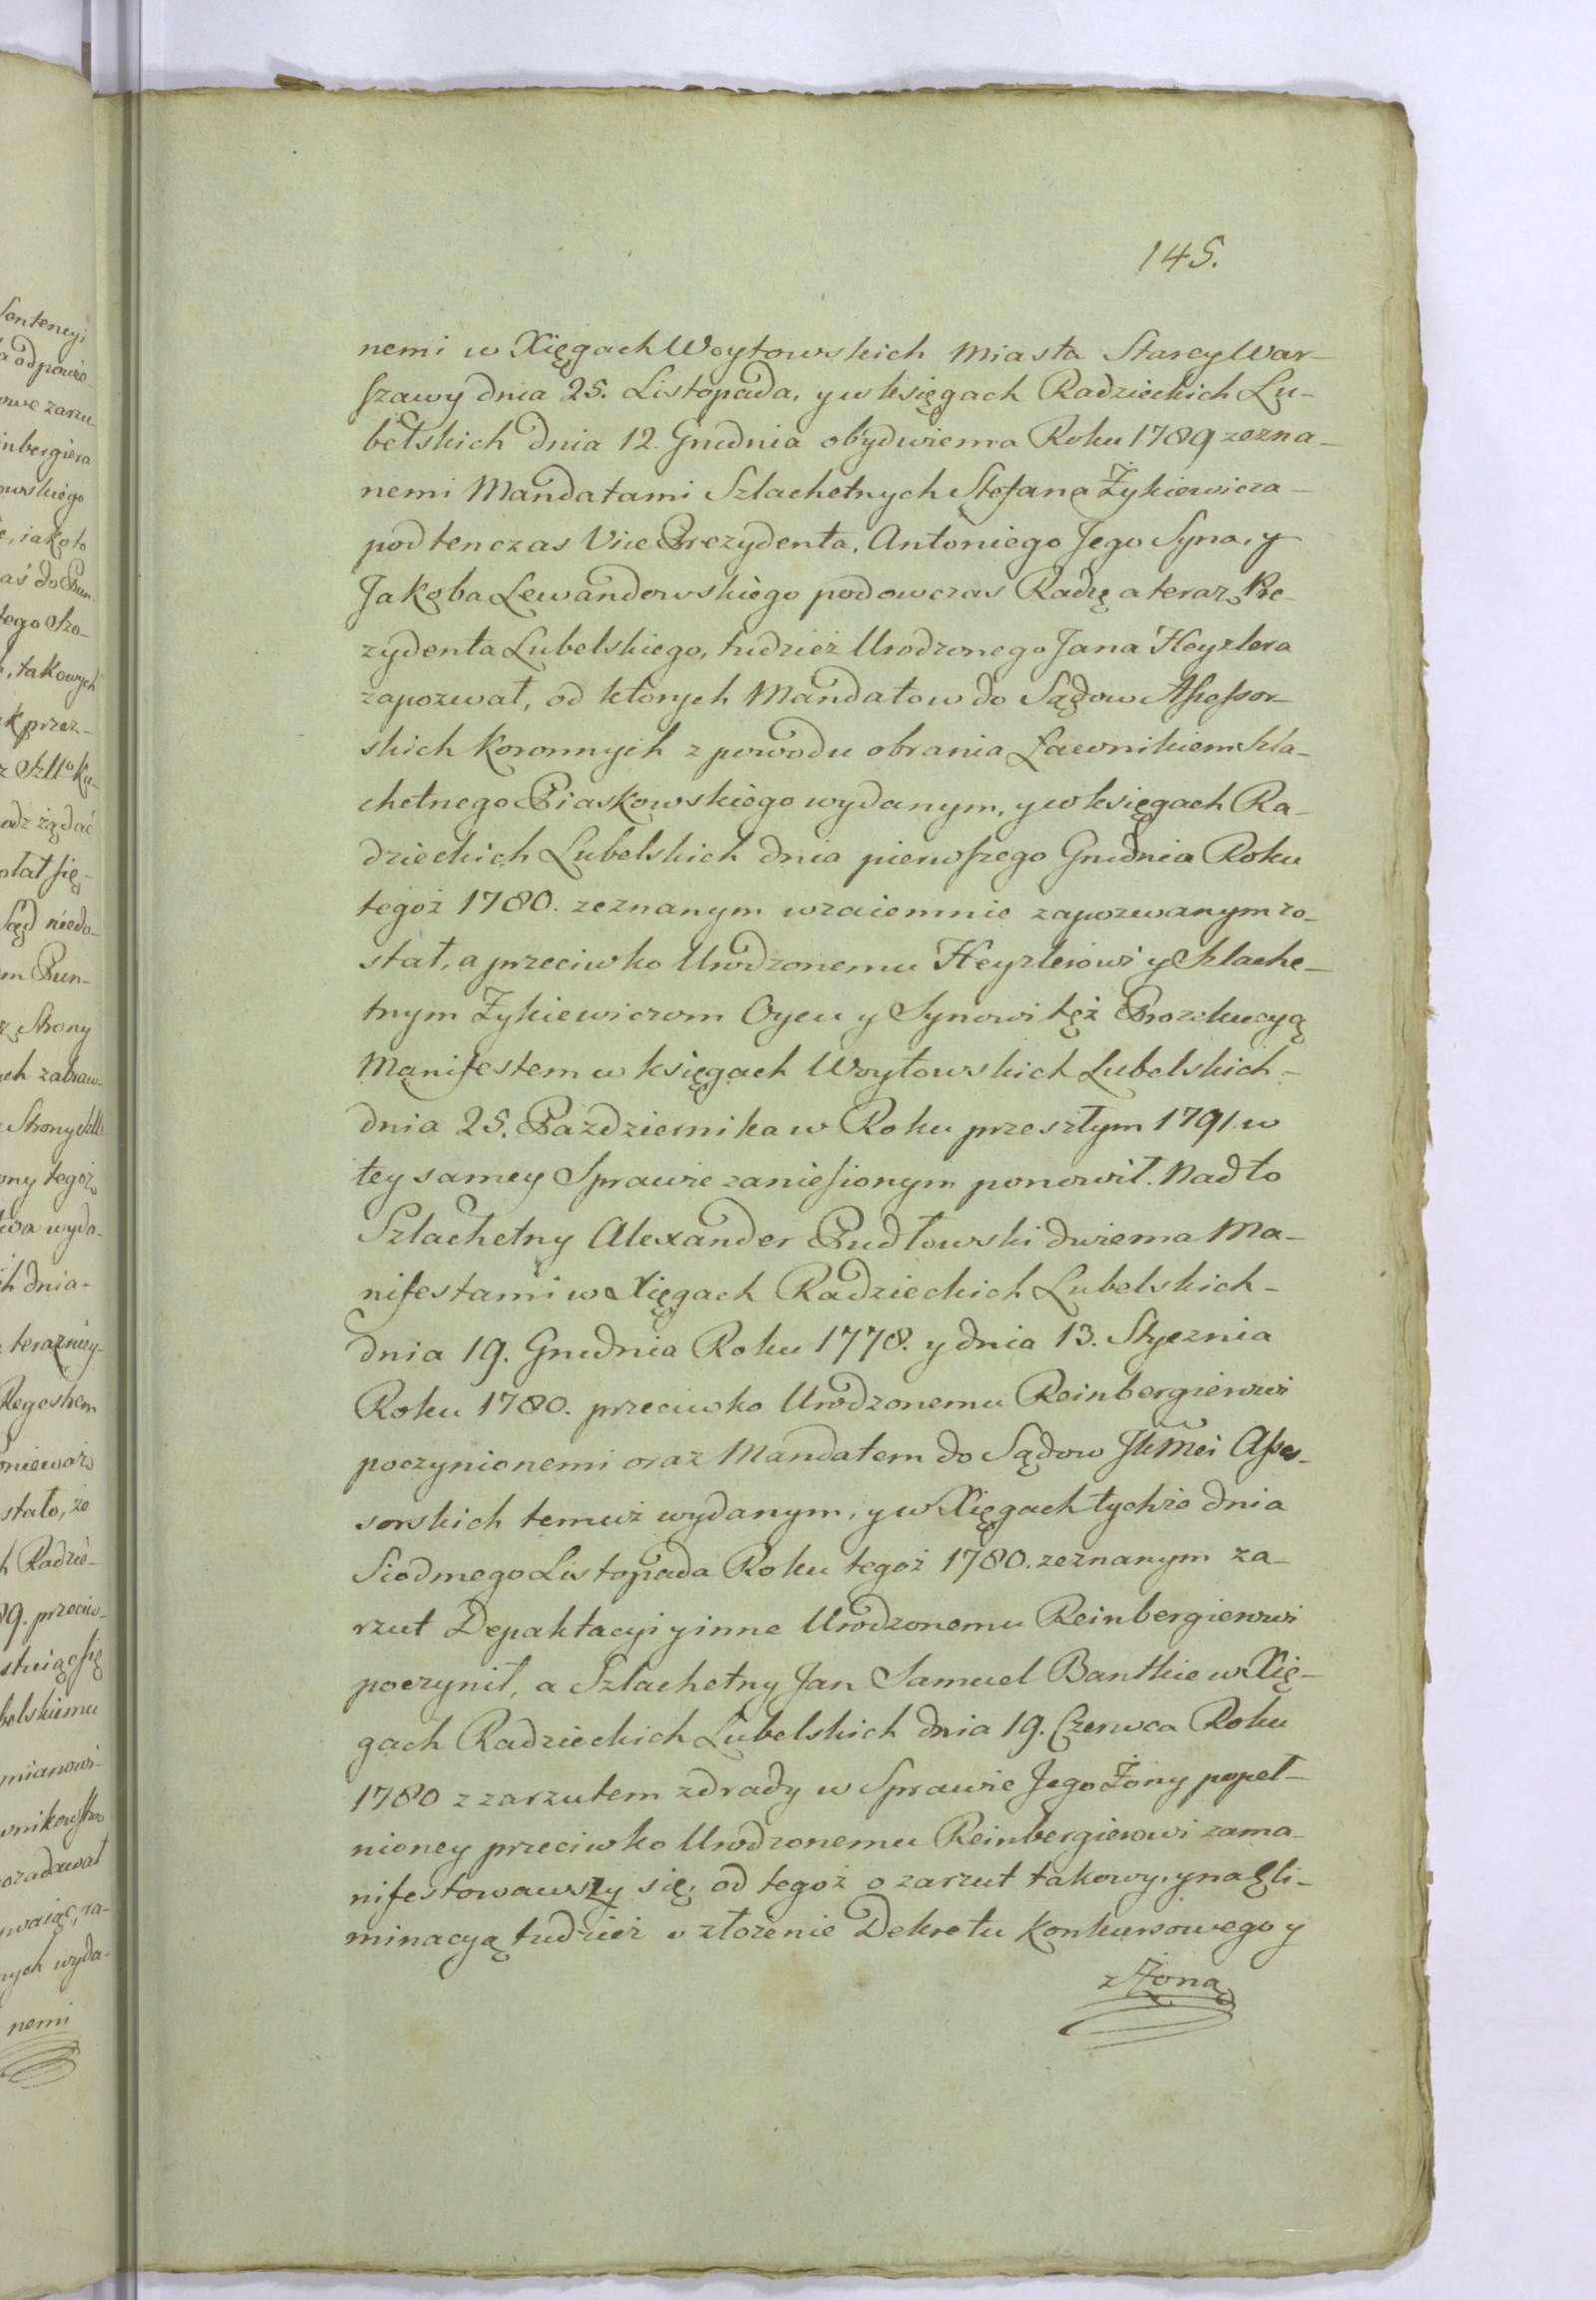 145.
nemi w Xięgach Woytowskich Miasta Starey War-
szawy dnia 25. Listopada, y w księgach Radzieckich Lu-
belskich dnia 12. Grudnia obydwiema Roku 1789 zezna-
nemi Mandatami Szlachetnych Stefana Żykiewicza-
pod ten czas Vice Prezydenta, Antoniego Jego Syna, y
Jakoba Lewandowskiego podowczas Radzę a teraz Pre-
zydenta Lubelskiego, tudzież Urodzonego Jana Heyzlera
zapozwał, od których Mandatow do Sądow Assessor-
skich Koronnych z powodu obrania Ławnikiem Szla-
chetnego Piaskowskiego wydanym, y w księgach Ra-
dzieckich Lubelskich dnia pierwszego Grudnia Roku
tegoż 1780. zeznanym wzaiemnie zapozwanym zo-
stał, a przeciwko Urodzonemu Heyzlerowi y Szlache-
tnym Żykiewiczom Oycu y Synowi też Prozekucyą
Manifestem w księgach Woytowskich Lubelskich-
dnia 25. Pazdziernika w Roku przeszłym 1791 w
tey samey Sprawie zaniesionym ponowił. Nadto
Szlachetny Alexander Pudłowski dwiema Ma-
nifestami w Xięgach Radzieckich Lubelskich-
dnia 19. Grudnia Roku 1778. y dnia 13. Stycznia
Roku 1780. przeciwko Urodzonemu Reinbergierowi
poczynionemi oraz Mandatem do Sądow JKMci Asses-
sorskich temuż wydanym, y w Xięgach tychże dnia
Siodmego Listopada Roku tegoż 1780. zeznanym za-
rzut Depaktacyi y inne Urodzonemu Reinbergierowi
poczynił, a Szlachetny Jan Samuel Bantkie w Xię-
gach Radzieckich Lubelskich dnia 19. Czerwca Roku
1780 z zarzutem zdrady w Sprawie Jego Żony popeł-
nioney przeciwko Urodzonemu Reinbergierowi zama-
nifestowawszy się, od tegoż o zarzut takowy, y na Eli-
minacyą tudzież o złożenie Dekretu Konkursowego y
z Żoną